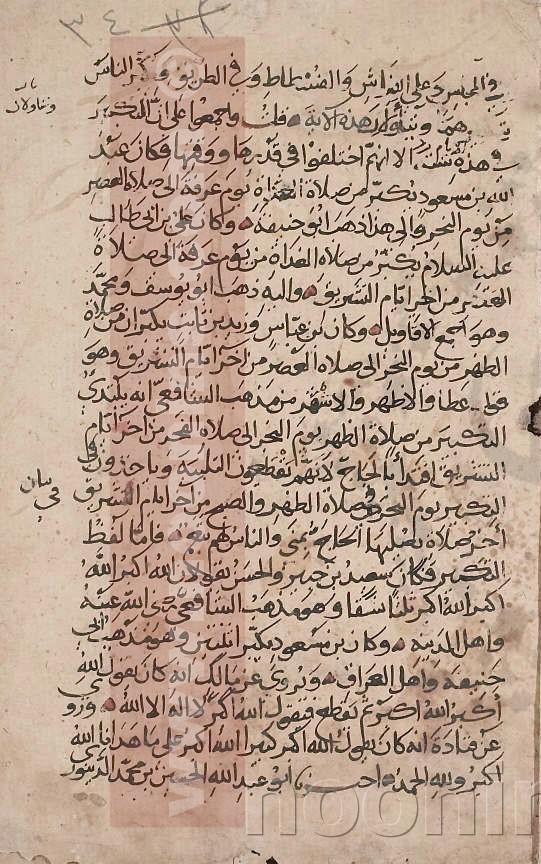 في المجلس وعلى الفراش والفسطاط وفي الطريق وكبر الناس
بتكبيرهما ويتأولان هذه الآية قلت واجمعوا على ان التكبير
في هذه سنة الا انهم اختلفوا في قدرها ووقتها فكان عبد
الله بن مسعود يكبر من صلاة الغداة يوم عرفة الى صلاة العصر
من يوم النحر والى هذا ذهب ابو حنيفة وكان علي بن ابي طالب
عليه السلام يكبر من صلاة الغداة من يوم عرفة الى صلاة
العصر من اخر ايام التشريق واليه ذهب ابو يوسف ومحمد
وهو اجمع الاقاويل وكان بن عباس وزيد بن ثابت يكبران من صلاة
الظهر من يوم النحر الى صلاة العصر من اخر ايام التشريق وهو
قول عطا والاظهر والاشهر من مذهب الشافعي انه يبتدئ
التكبير من صلاة الظهر يوم النحر الى صلاة الفجر من اخر ايام
التشريق اقتدا بالحاج لانهم يقطعون التلبية وياخذون في
التكبير يوم النحر صلاة الظهر والصبح من اخر ايام التشريق
اخر صلاة يصليها الحاج بمنى والناس لهم تبع فاما لفظ
التكبير فكان سعيد بن جبير والحسن يقولان الله اكبر الله
اكبر الله اكبر ثلثا نسقا وهو مذهب الشافعي رضي الله عنه
واهل المدينة وكان بن مسعود يكبر اثنتين وهو مذهب ابي
حنيفة واهل العراق ويروى عن مالك انه كان يقول الله
اكبر الله اكبر ثم يقطع فيقول الله اكبر لا اله الا الله وروي
عن قتادة انه كان يقول الله اكبر كبيرا الله اكبر على ما هدانا الله
اكبر ولله الحمد ابو عبد الله الحسين بن محمد الدينوري
في
بيان
noorlib